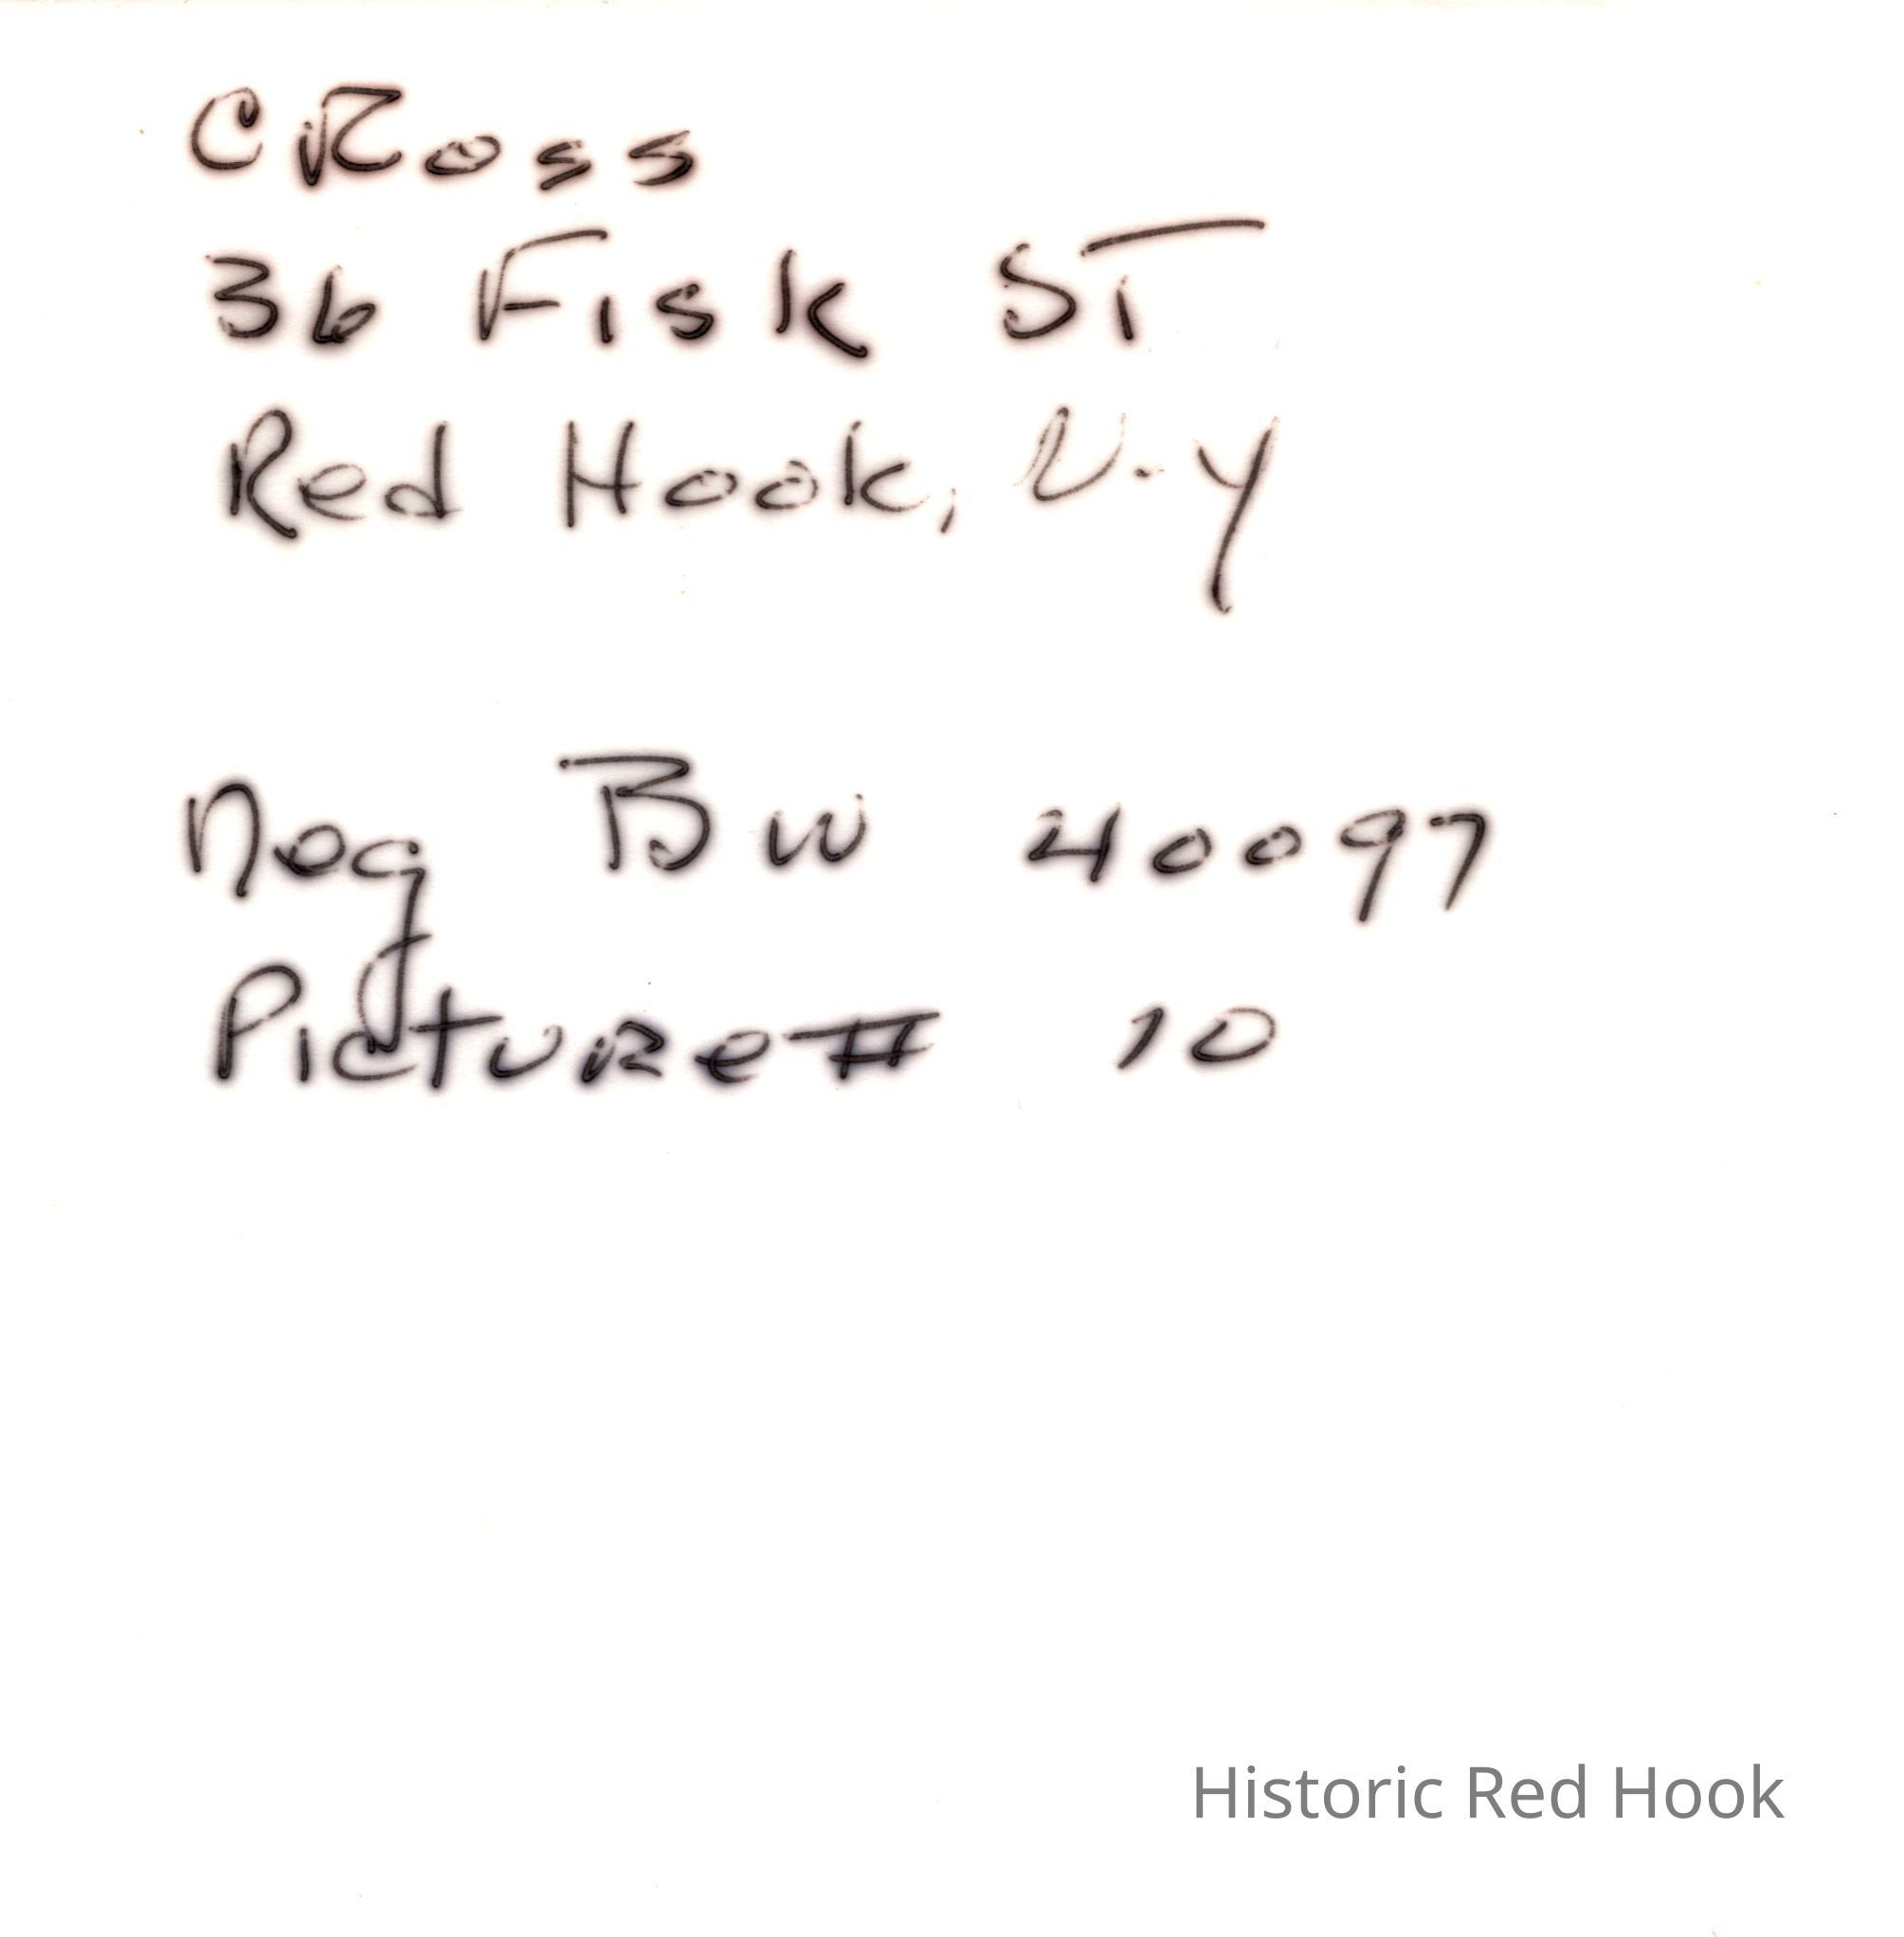 C Ross
36 Fisk ST
Red Hook, N.Y
Neg BW 40097
Picture # 10
Historic Red Hook